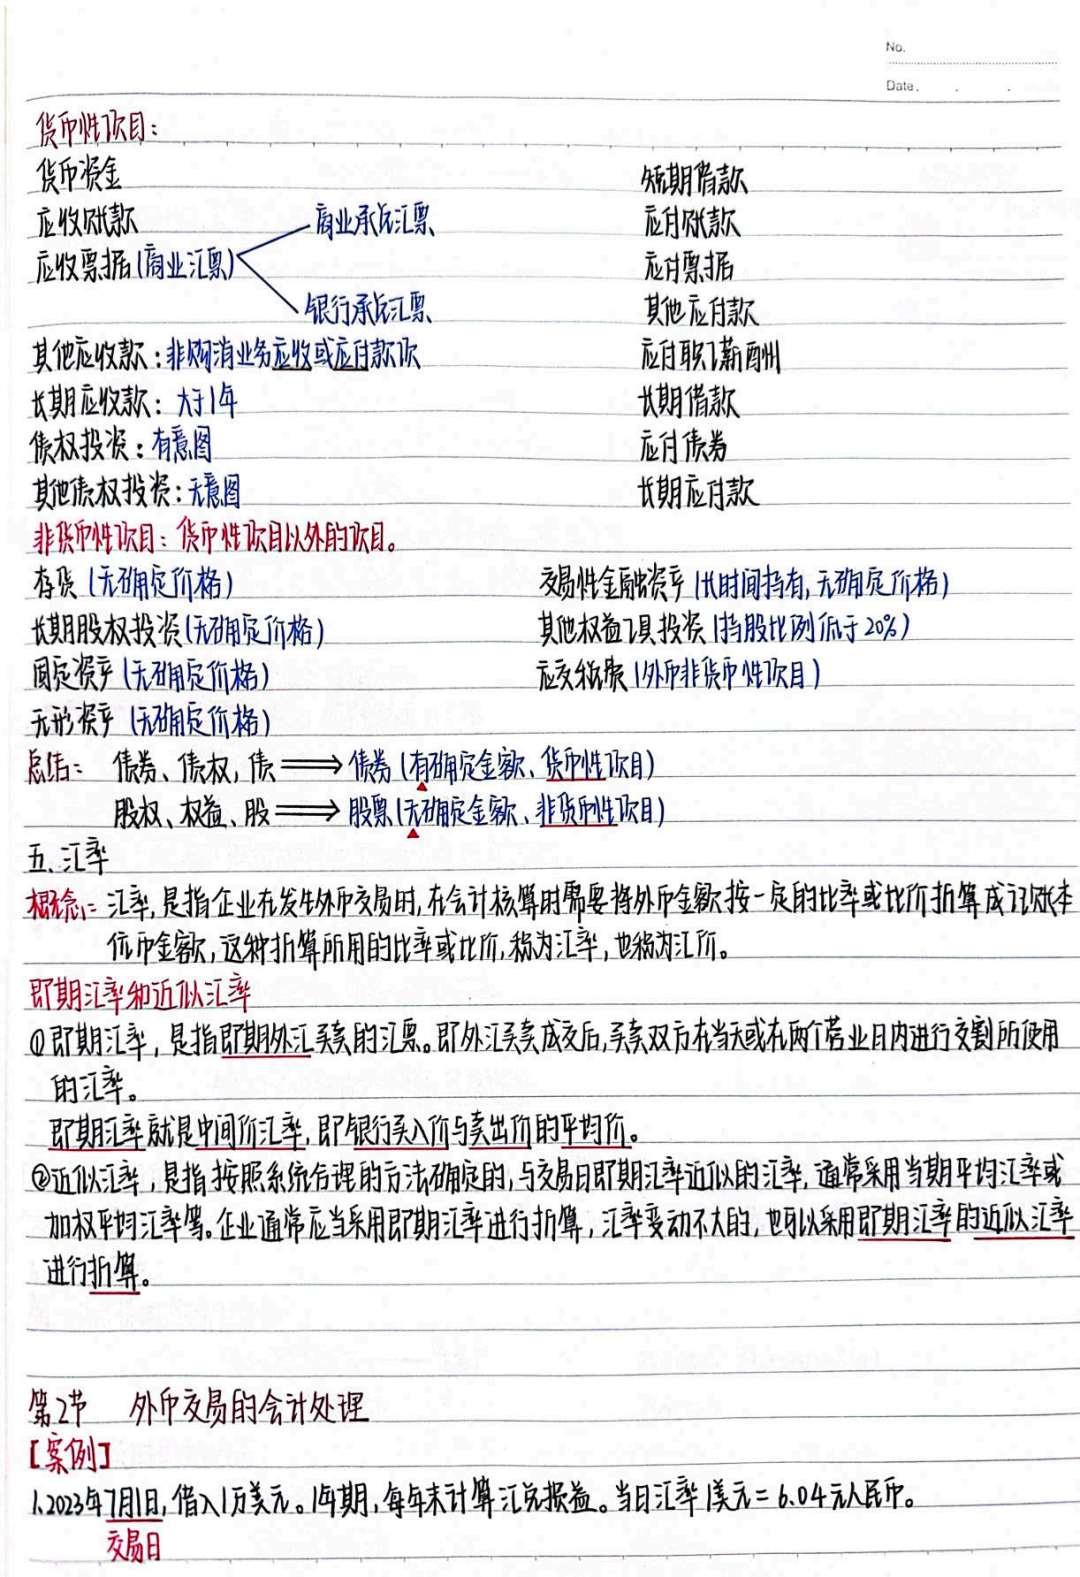 No.
Date.
货币性项目：
货币资金 短期借款
应收账款 商业承兑汇票 应付账款
应收票据(商业汇票) 应付票据
银行承兑汇票 其他应付款
其他应收款：非购销业务应收或应付款项 应付职工薪酬
长期应收款：大于1年 长期借款
债权投资：有意图 应付债券
其他债权投资：无意图 长期应付款
非货币性项目：货币性项目以外的项目。
存货(无确定价格) 交易性金融资产(长时间持有,无确定价格)
长期股权投资(无确定价格) 其他权益工具投资(持股比例低于20%)
固定资产(无确定价格) 应交税费(外币非货币性项目)
无形资产(无确定价格)
总结：债券、债权,债⟹债券(有确定金额、货币性项目)
股权、权益、股⟹股票(无确定金额、非货币性项目)
五、汇率
概念：汇率,是指企业在发生外币交易时,在会计核算时需要将外币金额按一定的比率或比价折算成记账本
位币金额,这种折算所用的比率或比价,称为汇率,也称为汇价。
即期汇率和近似汇率
①即期汇率,是指即期外汇买卖的汇票。即外汇买卖成交后,买卖双方在当天或在两个营业日内进行交割所使用
的汇率。
即期汇率就是中间价汇率,即银行买入价与卖出价的平均价。
②近似汇率,是指按照系统合理的方法确定的,与交易日即期汇率近似的汇率,通常采用当期平均汇率或
加权平均汇率等。企业通常应当采用即期汇率进行折算,汇率变动不大的,也可以采用即期汇率的近似汇率
进行折算。
第2节 外币交易的会计处理
[案例]
1.2023年7月1日,借入1万美元。1年期,每年末计算汇兑损益。当日汇率1美元=6.04元人民币。
交易日